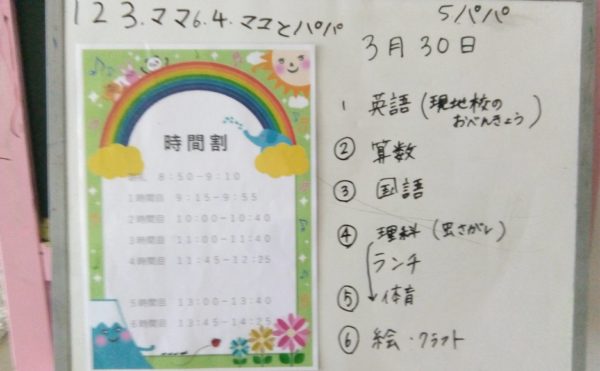 1 2 3.ママ6.4.ママとパパ
5パパ
3月30日
時間割
朝礼 8:50-9:10
1時間目 9:15-9:55
2時間目 10:00-10:40
3時間目 11:00-11:40
4時間目 11:45-12:25
5時間目 13:00-13:40
6時間目 13:45-14:25
1 英語(現地校の
おべんきょう)
② 算数
③ 国語
④ 理科(虫さがし)
ランチ
⑤ 体育
⑥ 絵・クラフト